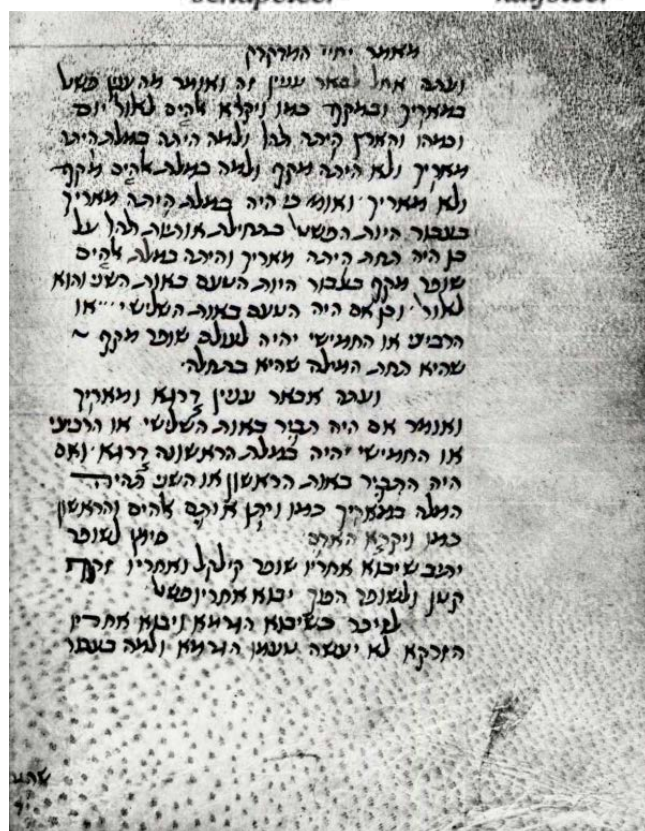 מאמר יחיי המדקדק
ועתה אחל לבאר ענין זה ואומר מה ענין פשט
במאריך ובמקף כמו ויקרא אלהים לאור יום
וכמהו והארץ היתה תהו ולמה היתה במלת היתה
מאריך ולא היתה מקף ולמה במלת אלהים מקף
ולא מאריך ואומ׳ כי היה במלת היתה מאריך
בעבור היות הפשט בתחילת אותיות תהו על
כן היה תחת היתה מאריך והיתה במלת אלהים
שופר מקף בעבור היות הטעם באות השני והוא
לאור וכן אם היה הטעם באות השלישי או
הרביעי או החמישי יהיה לעולם שופר מקף
שהיא תחת המילה שהיא בתחלה
ועתה אבאר ענין דרגא ומאריך
ואומר אם היה תביר באות השלישי או הרביעי
או החמישי יהיה במלה הראשונה דרגא ואם
היה התביר באות הראשון או השני תהיה
המלה במאריך כמו ויתן אותם אלהים והראשון
כמו ויקרא האדם סימן לשופר
יתיב שיבוא אחריו שופר קילקל ואחריו זקף
קטן ולשופר הפוך יבוא אחריו פשט
לפיכך כשיבוא הגרמא ויבוא אחריו
הזרקא לא יעשה טעמו הגרמא ולמה בעבור